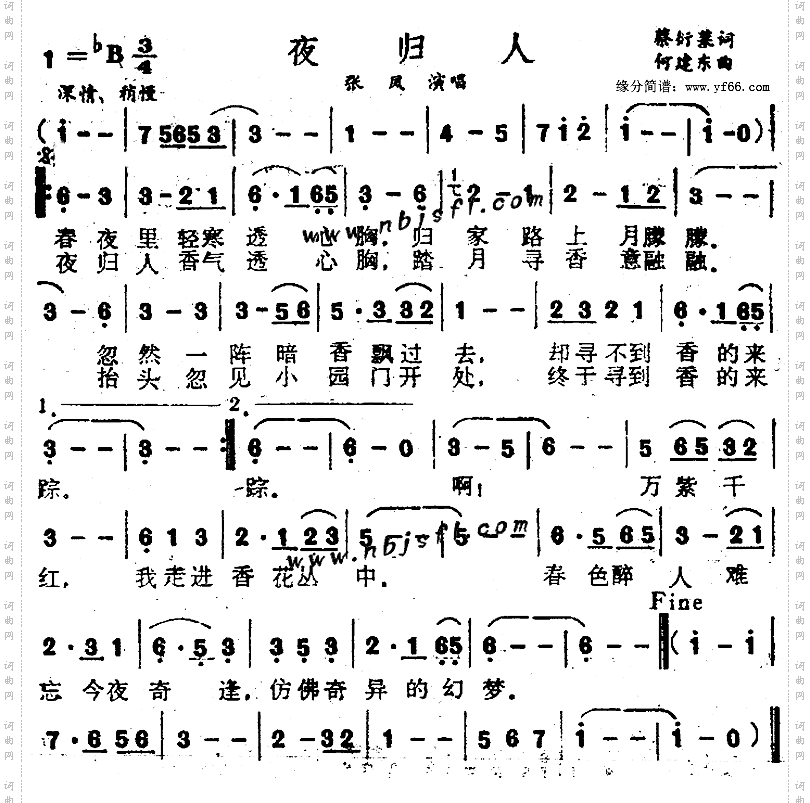 1=♭B 3/4 夜归人 蔡衍棻词
何建东曲
深情、稍慢 张凤演唱 缘分简谱：www.yf66.com
( i - - | 7 5653 | 3 - - | 1 - - | 4 - 5 | 7 i 2 | i - - | i - 0 ) |
6 - 3 | 3 - 21 | 6 · 1 65 | 3 - 6 | 2 - 1 | 2 - 12 | 3 - - |
www.nbjsfl.com
春夜里轻寒透心胸，归家路上月朦朦。
夜归人香气透心胸，踏月寻香意融融。
3 - 6 | 3 - 3 | 3 - 56 | 5 · 3 32 | 1 - - | 2 3 21 | 6 · 1 65 |
忽然一阵暗香飘过去，却寻不到香的来
抬头忽见小园门开处，终于寻到香的来
1. 2.
3 - - | 3 - - :| 6 - - | 6 - 0 | 3 - 5 | 6 - - | 5 65 32 |
踪。踪。啊！万紫千
3 - - | 6 1 3 | 2 · 1 23 | 5 - - | 5 - - | 6 · 5 65 | 3 - 21 |
www.nbjsfl.com
红，我走进香花丛中。春色醉人难
Fine
2 · 3 1 | 6 · 5 3 | 3 5 3 | 2 · 1 65 | 6 - - | 6 - - || ( i - i |
忘今夜奇逢，仿佛奇异的幻梦。
7 · 6 56 | 3 - - | 2 - 32 | 1 - - | 5 6 7 | i - - | i - 0 ) ||
词曲网